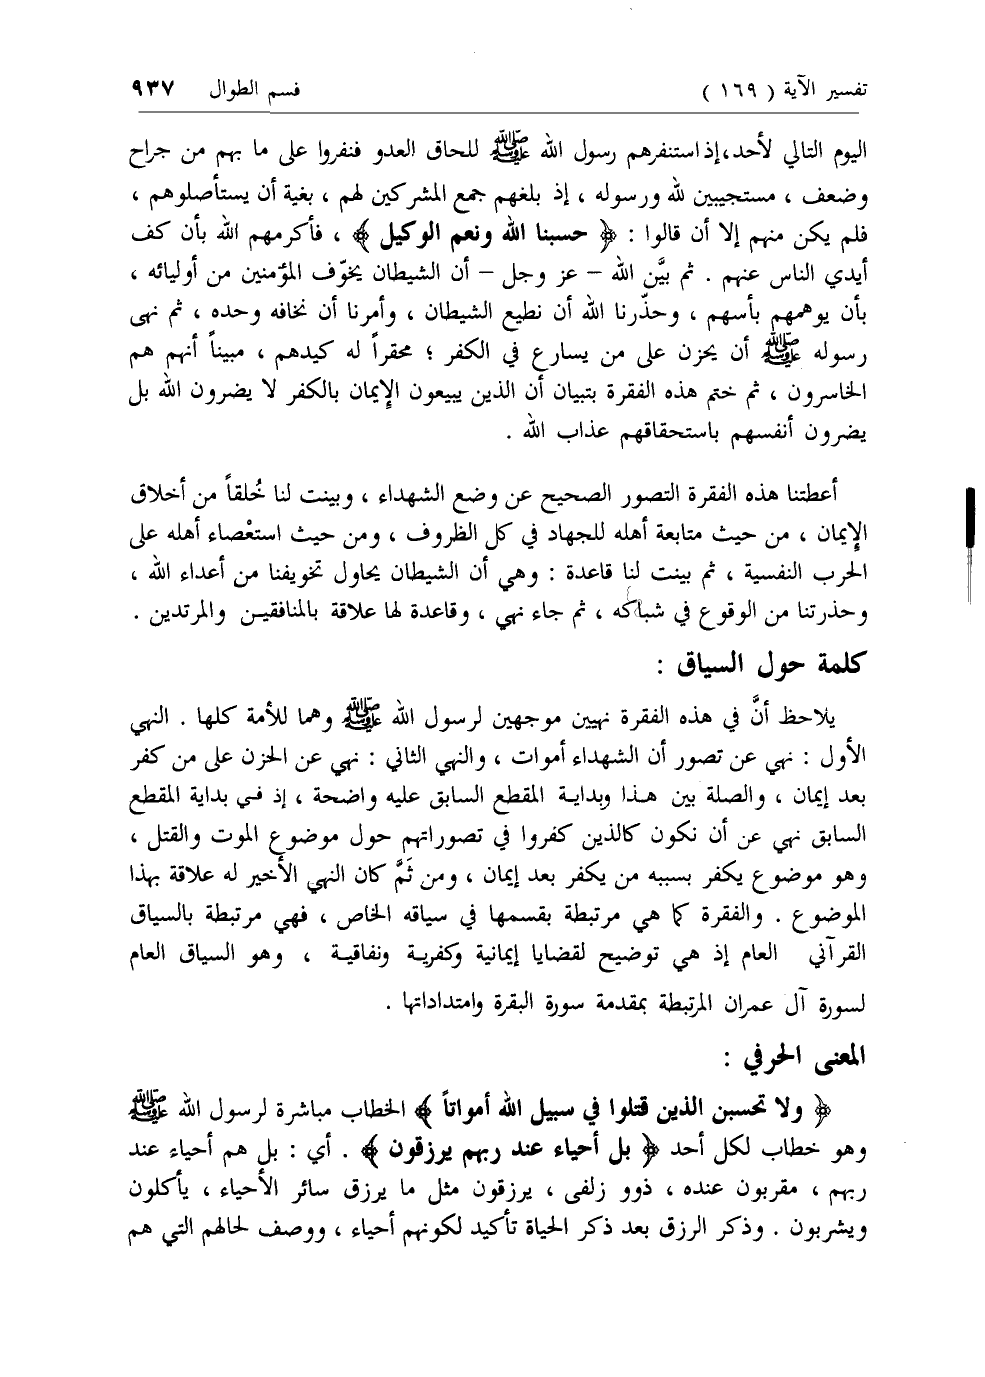 تفسير الآية ( ١٦٩ ) قسم الطوال ٩٣٧
اليوم التالي لأحد،إذ استنفرهم رسول الله ﷺ للحاق العدو فنفروا على ما بهم من جراح
وضعف ، مستجيبين لله ورسوله ، إذ بلغهم جمع المشركين لهم ، بغية أن يستأصلوهم ،
فلم يكن منهم إلا أن قالوا : ﴿ حسبنا الله ونعم الوكيل ﴾ ، فأكرمهم الله بأن كف
أيدي الناس عنهم . ثم بيَّن الله – عز وجل – أن الشيطان يخوّف المؤمنين من أوليائه ،
بأن يوهمهم بأسهم ، وحذّرنا الله أن نطيع الشيطان ، وأمرنا أن نخافه وحده ، ثم نهى
رسوله ﷺ أن يحزن على من يسارع في الكفر ؛ محقراً له كيدهم ، مبيناً أنهم هم
الخاسرون ، ثم ختم هذه الفقرة بتبيان أن الذين يبيعون الإيمان بالكفر لا يضرون الله بل
يضرون أنفسهم باستحقاقهم عذاب الله .
أعطتنا هذه الفقرة التصور الصحيح عن وضع الشهداء ، وبينت لنا خُلقاً من أخلاق
الإيمان ، من حيث متابعة أهله للجهاد في كل الظروف ، ومن حيث استعْصاء أهله على
الحرب النفسية ، ثم بينت لنا قاعدة : وهي أن الشيطان يحاول تخويفنا من أعداء الله ،
وحذرتنا من الوقوع في شباكه ، ثم جاء نهي ، وقاعدة لها علاقة بالمنافقيـن والمرتدين .
كلمة حول السياق :
يلاحظ أنَّ في هذه الفقرة نهيين موجهين لرسول الله ﷺ وهما للأمة كلها . النهي
الأول : نهي عن تصور أن الشهداء أموات ، والنهي الثاني : نهي عن الحزن على من كفر
بعد إيمان ، والصلة بين هـذا وبدايـة المقطع السابق عليه واضحة ، إذ فـي بداية المقطع
السابق نهي عن أن نكون كالذين كفروا في تصوراتهم حول موضوع الموت والقتل ،
وهو موضوع يكفر بسببه من يكفر بعد إيمان ، ومن ثَمَّ كان النهي الأخير له علاقة بهذا
الموضوع . والفقرة كما هي مرتبطة بقسمها في سياقه الخاص ، فهي مرتبطة بالسياق
القرآني العام إذ هي توضيح لقضايا إيمانية وكفريـة ونفاقيـة ، وهو السياق العام
لسورة آل عمران المرتبطة بمقدمة سورة البقرة وامتداداتها .
المعنى الحرفي :
﴿ ولا تحسبن الذين قتلوا في سبيل الله أمواتاً ﴾ الخطاب مباشرة لرسول الله ﷺ
وهو خطاب لكل أحد ﴿ بل أحياء عند ربهم يرزقون ﴾ . أي : بل هم أحياء عند
ربهم ، مقربون عنده ، ذوو زلفى ، يرزقون مثل ما يرزق سائر الأحياء ، يأكلون
ويشربون . وذكر الرزق بعد ذكر الحياة تأكيد لكونهم أحياء ، ووصف لحالهم التي هم